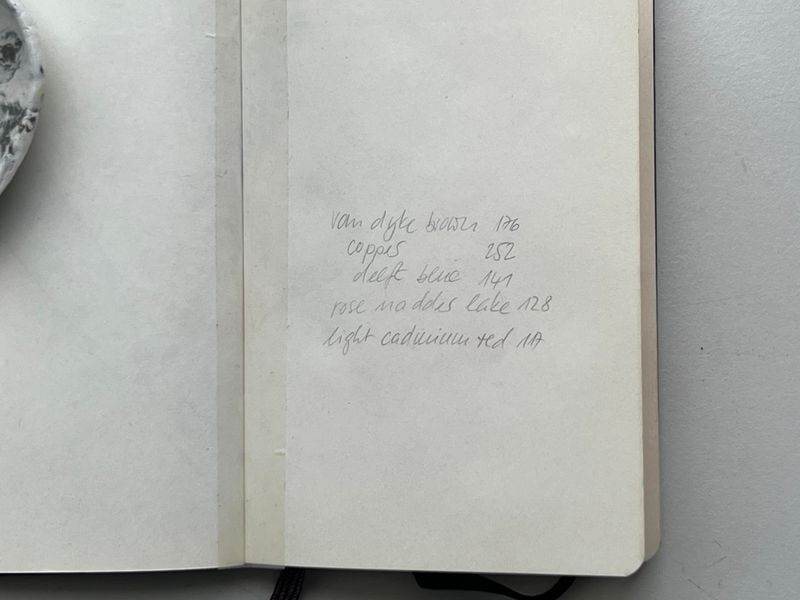 van dyke brown 176
copper 252
delft blue 141
rose madder lake 128
light cadmium red 117